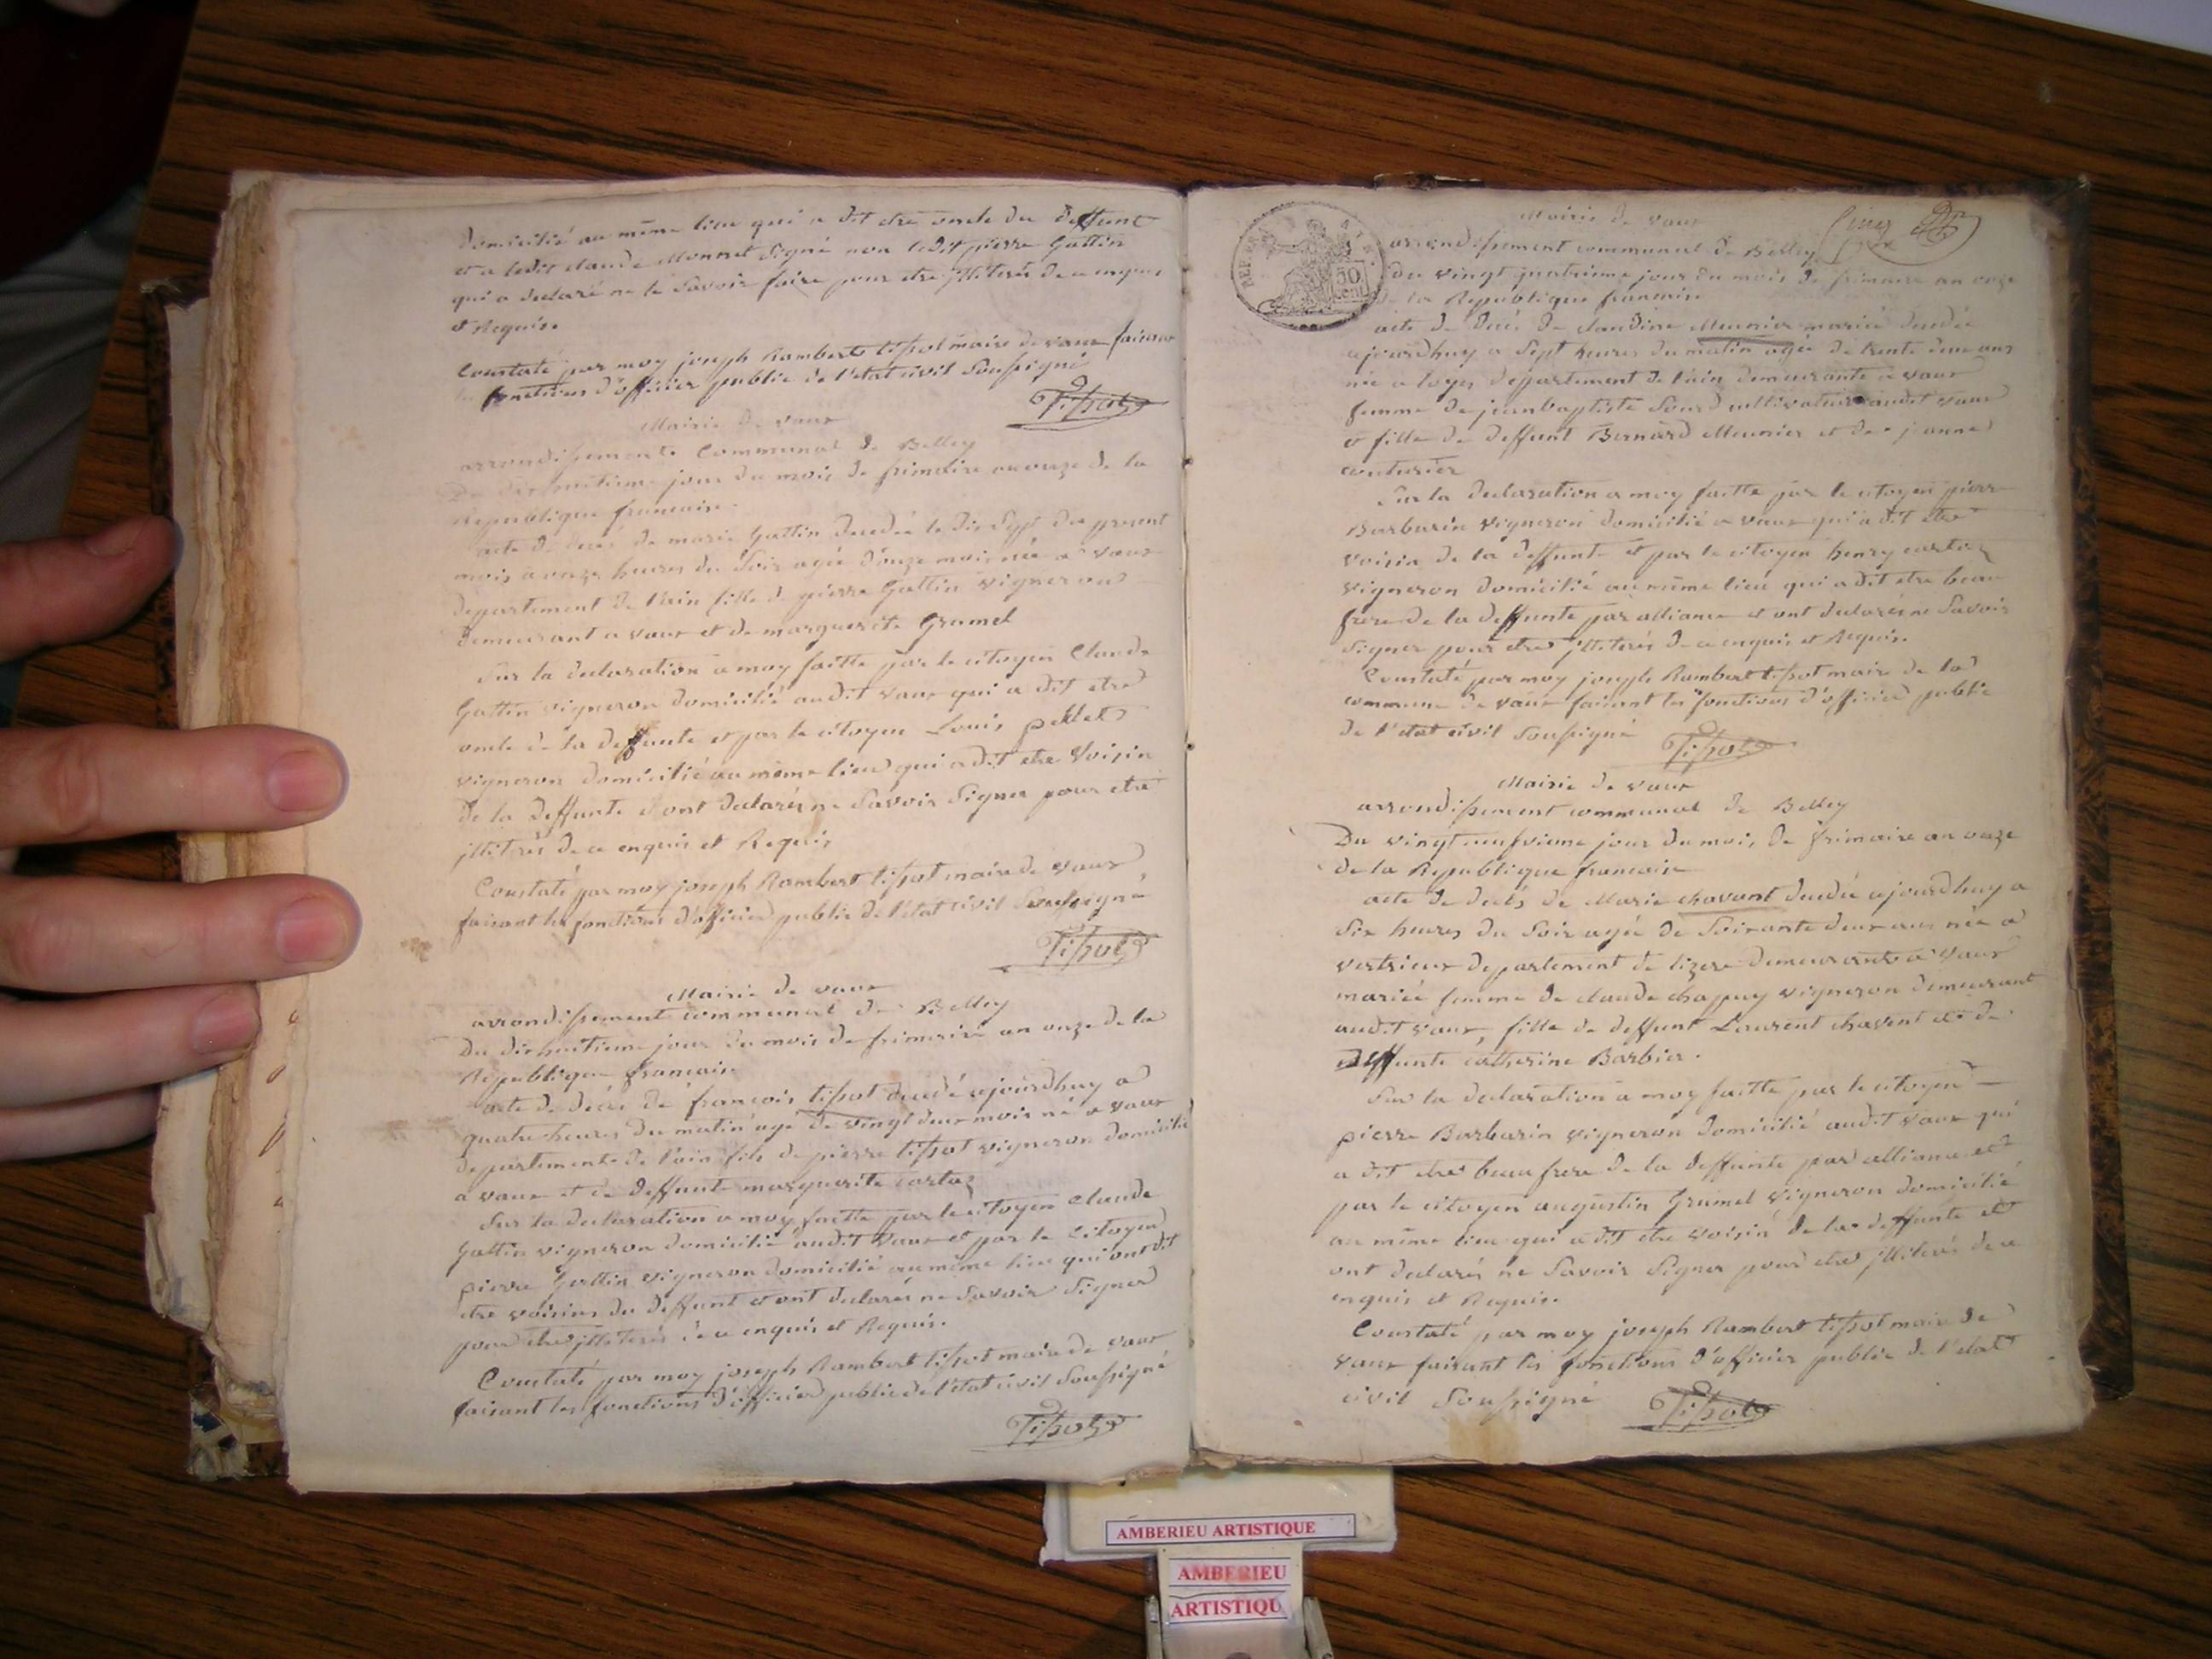 domicilié au même lieu qui a dit etre oncle du deffunt
et a ledit claude Monnet signé non ledit pierre Gattin
qui a declaré ne le savoir faire pour etre jlliterés de ce enquis
et Requis.
Constaté par moy joseph Rambert tissot maire de vaux faisant
les fonctions d'officier public de l'etat civil soussigné
Tissot
Mairie de vaux
arrondissement Communal de Belley
Du dixhuitieme jour du mois de frimaire an onze de la
Republique francaise.
acte de decés de marie Gattin decedée le dix sept du present
mois a onze heures du soir agée d'onze mois née a vaux
departement de l'ain fille de pierre Gattin vigneron
demeurant a vaux et de marguerite Grumel
Sur la declaration a moy faitte par le citoyen Claude
Gattin vigneron domicilié audit vaux qui a dit etre
oncle de la deffunte et par le citoyen Louis pellet
vigneron domicilié au même lieu qui a dit etre Voisin
de la deffunte et ont declarés ne savoir signer pour etre
jllitrés de ce enquis et Requis
Constaté par moy joseph Rambert tissot maire de vaux
faisant les fonctions d'officier public de l'etat civil soussigné
Tissot
Mairie de vaux
arrondissement communal de Belley
Du dixhuitieme jour du mois de frimaire an onze de la
Republique francaise
acte de decés de françois tissot decedé ajourdhuy a
quatre heures du matin agé de vingt deux mois né a vaux
departement de l'ain fils de pierre tissot vigneron domicilié
a vaux et de deffunte marguerite cortaz
Sur la declaration a moy faitte par le citoyen claude
Gattin vigneron domicilié audit vaux et par le citoyen
pierre Gattin vigneron domicilié au même lieu qui ont dit
etre voisins du deffunt et ont declarés ne savoir signer
pour etre jlliterés de ce enquis et Requis.
Constaté par moy joseph Rambert tissot maire de vaux
faisant les fonctions d'officier public de l'etat civil soussigné
Tissot
Mairie de vaux
arrondissement communal de Belley
du vingt quatrieme jour du mois de frimaire an onze
de la Republique francaise
50 cent
acte de decés de Claudine Meunier mariée decedée
ajourdhuy a sept heures du matin agée de trente deux ans
née a loyes departement de l'ain demeurante a vaux
femme de jeanbaptiste sourd cultivateur audit vaux
et fille de deffunt Bernard Meunier et de jeanne
couturier
Sur la declaration a moy faitte par le citoyen pierre
Barbarin vigneron domicilié a vaux qui a dit etre
voisin de la deffunte et par le citoyen henry cortaz
vigneron domicilié au même lieu qui a dit etre beau
frere de la deffunte par alliance et ont declarés ne savoir
signer pour etre jlliterés de ce enquis et Requis.
Constaté par moy joseph Rambert tissot maire de la
commune de vaux faisant les fonctions d'officier public
de l'etat civil soussigné
Tissot
Mairie de vaux
arrondissement communal de Belley
Du vingt neufvieme jour du mois de frimaire an onze
de la Republique francaise
acte de decés de Marie chavant decedée ajourdhuy a
six heures du soir agée de soixante deux ans née a
vertrieux departement de lizere demeurante a vaux
mariée femme de claude chapuy vigneron demeurant
audit vaux, fille de deffunt Laurent chavent et de
deffunte catherine Barbier.
Sur la declaration a moy faitte par le citoyen
pierre Barbarin vigneron domicilié audit vaux qui
a dit etre beau frere de la deffunte par alliance et
par le citoyen augustin Grumel vigneron domicilié
au même lieu qui a dit etre voisin de la deffunte et
ont declarés ne savoir signer pour etre jlliterés de ce
enquis et Requis.
Constaté par moy joseph Rambert tissot maire de
vaux faisant les fonctions d'officier public de l'etat
civil soussigné
Tissot
AMBERIEU ARTISTIQUE
AMBERIEU
ARTISTIQU